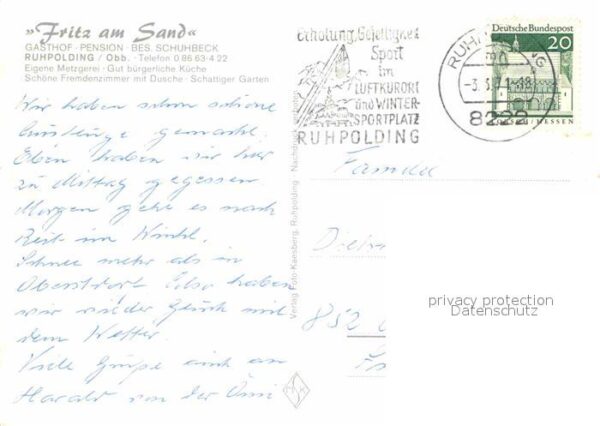 „Fritz am Sand“
GASTHOF · PENSION · BES. SCHUHBECK
RUHPOLDING / Obb. · Telefon 0 86 63-4 22
Eigene Metzgerei · Gut bürgerliche Küche
Schöne Fremdenzimmer mit Dusche · Schattiger Garten
Wir haben schon schöne
Ausflüge gemacht.
Eben haben wir hier
zu Mittag gegessen.
Morgen geht es nach
Reit im Winkl.
Schnee mehr als in
Oberstdorf. Also haben
wir wieder Glück mit
dem Wetter.
Viele Grüße auch an
Harald von der Omi
Erholung, Geselligkeit
Sport
im
LUFTKURORT
und WINTER-
SPORTPLATZ
RUHPOLDING
Deutsche Bundespost
20
8222
Verlag Foto-Kaesberg, Ruhpolding
Familie
852
privacy protection
Datenschutz